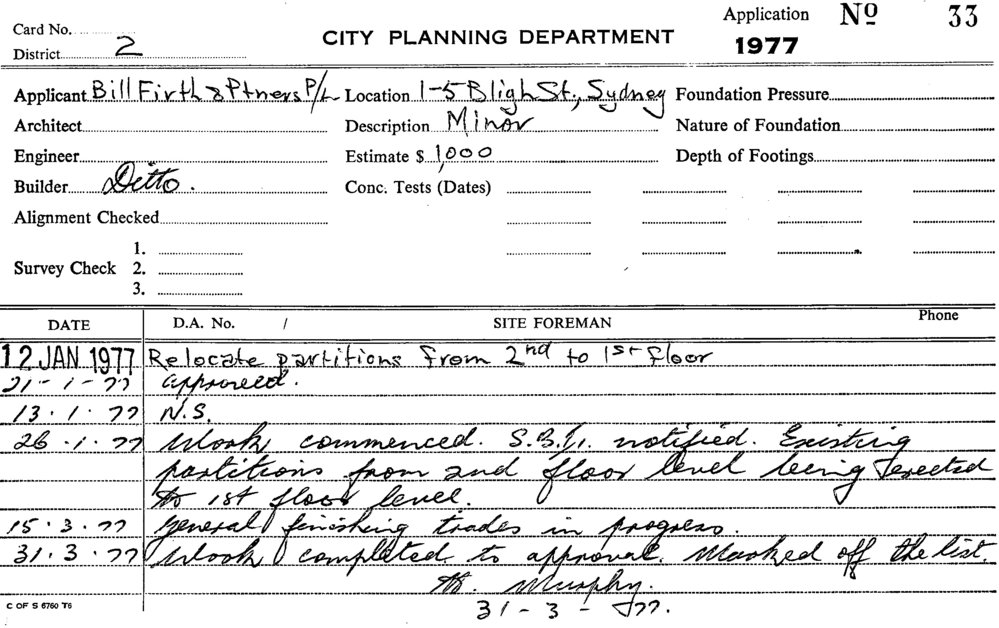 Card No.
Application No 33
District 2
CITY PLANNING DEPARTMENT
1977
Applicant Bill Firth & Ptners P/L Location 1-5 Bligh St., Sydney Foundation Pressure
Architect Description Minor Nature of Foundation
Engineer Estimate $ 1,000 Depth of Footings
Builder Ditto. Conc. Tests (Dates)
Alignment Checked
1.
Survey Check 2.
3.
DATE D.A. No. / SITE FOREMAN Phone
12 JAN 1977 Relocate partitions from 2nd to 1st floor
21-1-77 approved.
13.1.77 N.S.
26.1.77 Work commenced. S.B.U. notified. Existing
partitions from 2nd floor level being erected
to 1st floor level.
15.3.77 General finishing trades in progress.
31.3.77 Work completed to approval. Marked off the list.
Murphy.
C OF S 6760 T6
31-3-77.